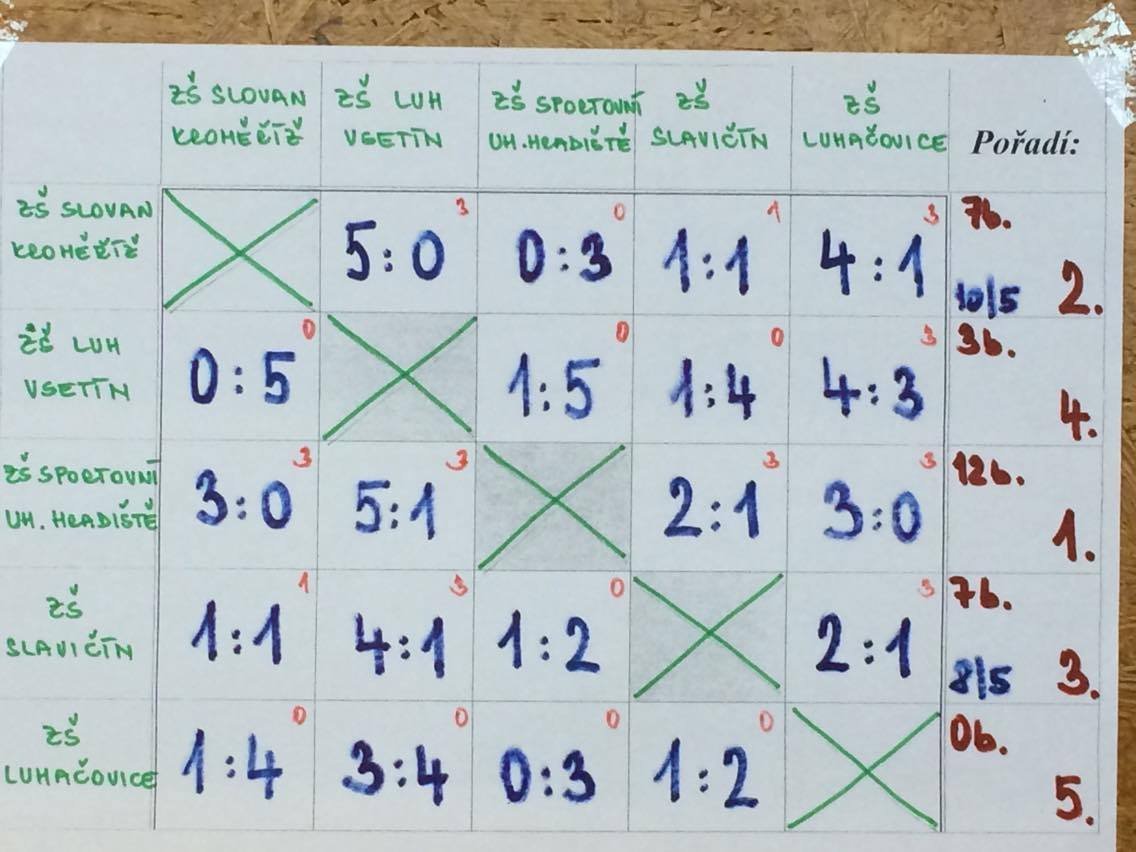 ZŠ SLOVAN KROMĚŘÍŽ ZŠ LUH VSETÍN ZŠ SPORTOVNÍ UH. HRADIŠTĚ ZŠ SLAVIČÍN ZŠ LUHAČOVICE Pořadí:
ZŠ SLOVAN KROMĚŘÍŽ 5:0 3 0:3 0 1:1 1 4:1 3 7b. 10/5 2.
ZŠ LUH VSETÍN 0:5 0 1:5 0 1:4 0 4:3 3 3b. 4.
ZŠ SPORTOVNÍ UH. HRADIŠTĚ 3:0 3 5:1 3 2:1 3 3:0 3 12b. 1.
ZŠ SLAVIČÍN 1:1 1 4:1 3 1:2 0 2:1 3 7b. 8/5 3.
ZŠ LUHAČOVICE 1:4 0 3:4 0 0:3 0 1:2 0 0b. 5.